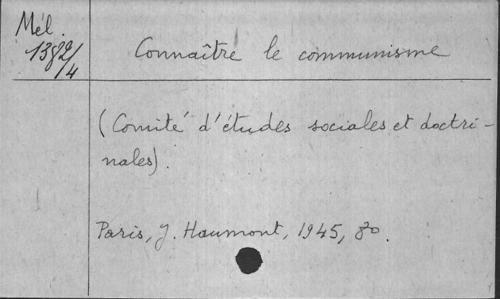 Mél.
1382/4
Connaître le communisme
(Comité d'études sociales et doctri-
nales).
Paris, J. Haumont, 1945, 8°.